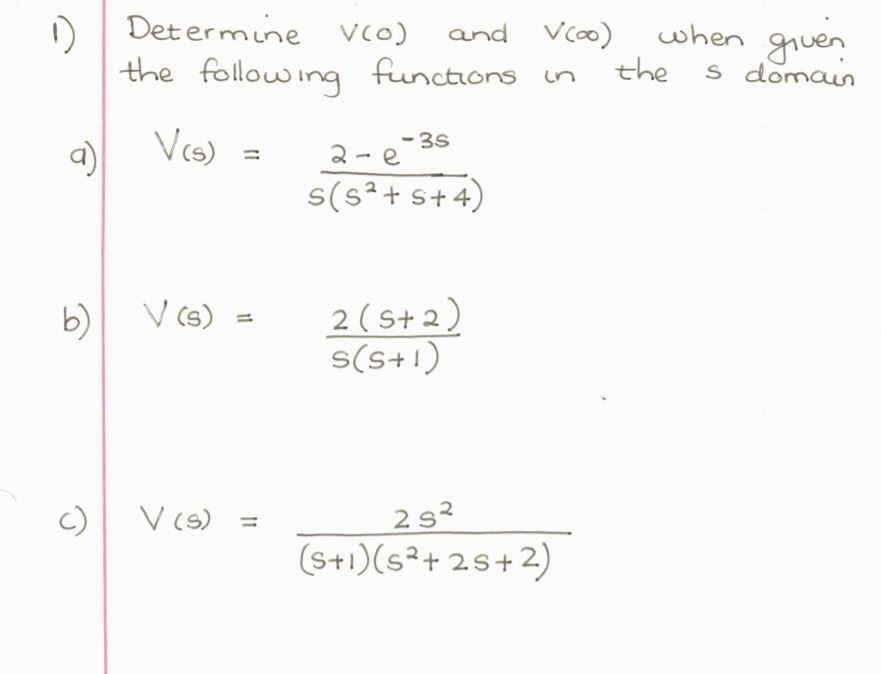 1) Determine v(0) and v(∞) when given
the following functions in the s domain
a) V(s) = 2 - e^-3s / s(s² + s + 4)
b) V(s) = 2(s+2) / s(s+1)
c) V(s) = 2s² / (s+1)(s² + 2s + 2)